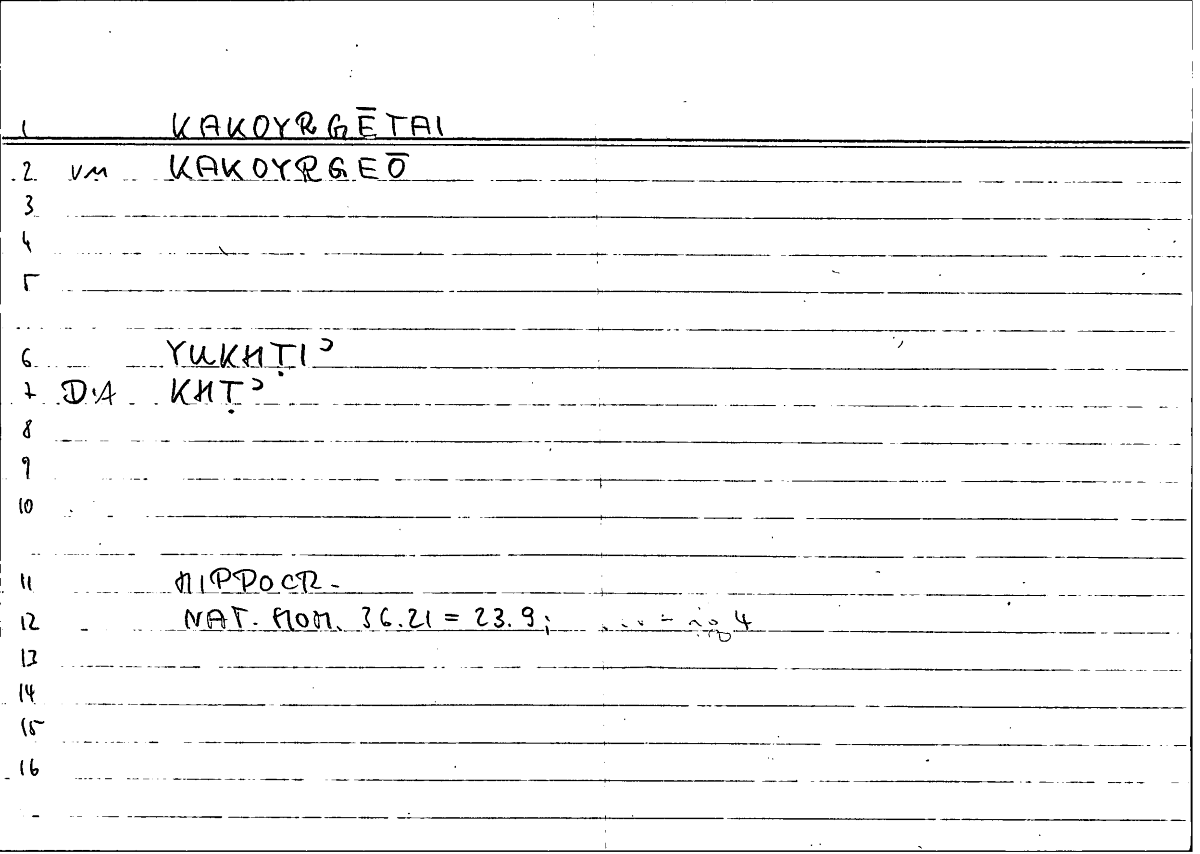 1 KAKOYRGĒTAI
2 VM KAKOYRGEŌ
3
4
5
6 YUKHṬIʾ
7 D.A KHṬʾ
8
9
10
11 HIPPOCR.
12 NAT. HOM. 36.21 = 23.9;
13
14
15
16